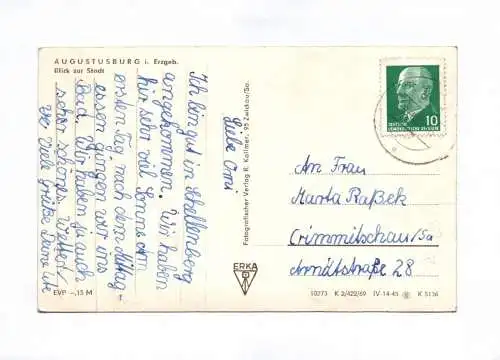 AUGUSTUSBURG i. Erzgeb.
Blick zur Stadt
Liebe Omi
Ich bin gut in Schellenberg
angekommen. Wir haben
hir sehr viel Sonne. Am
ersten Tag nach dem Mittag
essen gingen wir ins
Bad. Wir haben ja auch
sehr schönes Wetter!
Viele Grüße Deine Ute
EVP -,15 M
Fotografischer Verlag R. Kallmer, 95 Zwickau/Sa.
ERKA
10
DEUTSCHE
DEMOKRATISCHE REPUBLIK
An Frau
Marta Raßek
Crimmitschau/Sa
Arndtstraße 28
10273 K 3/422/69 IV-14-45 K 5136